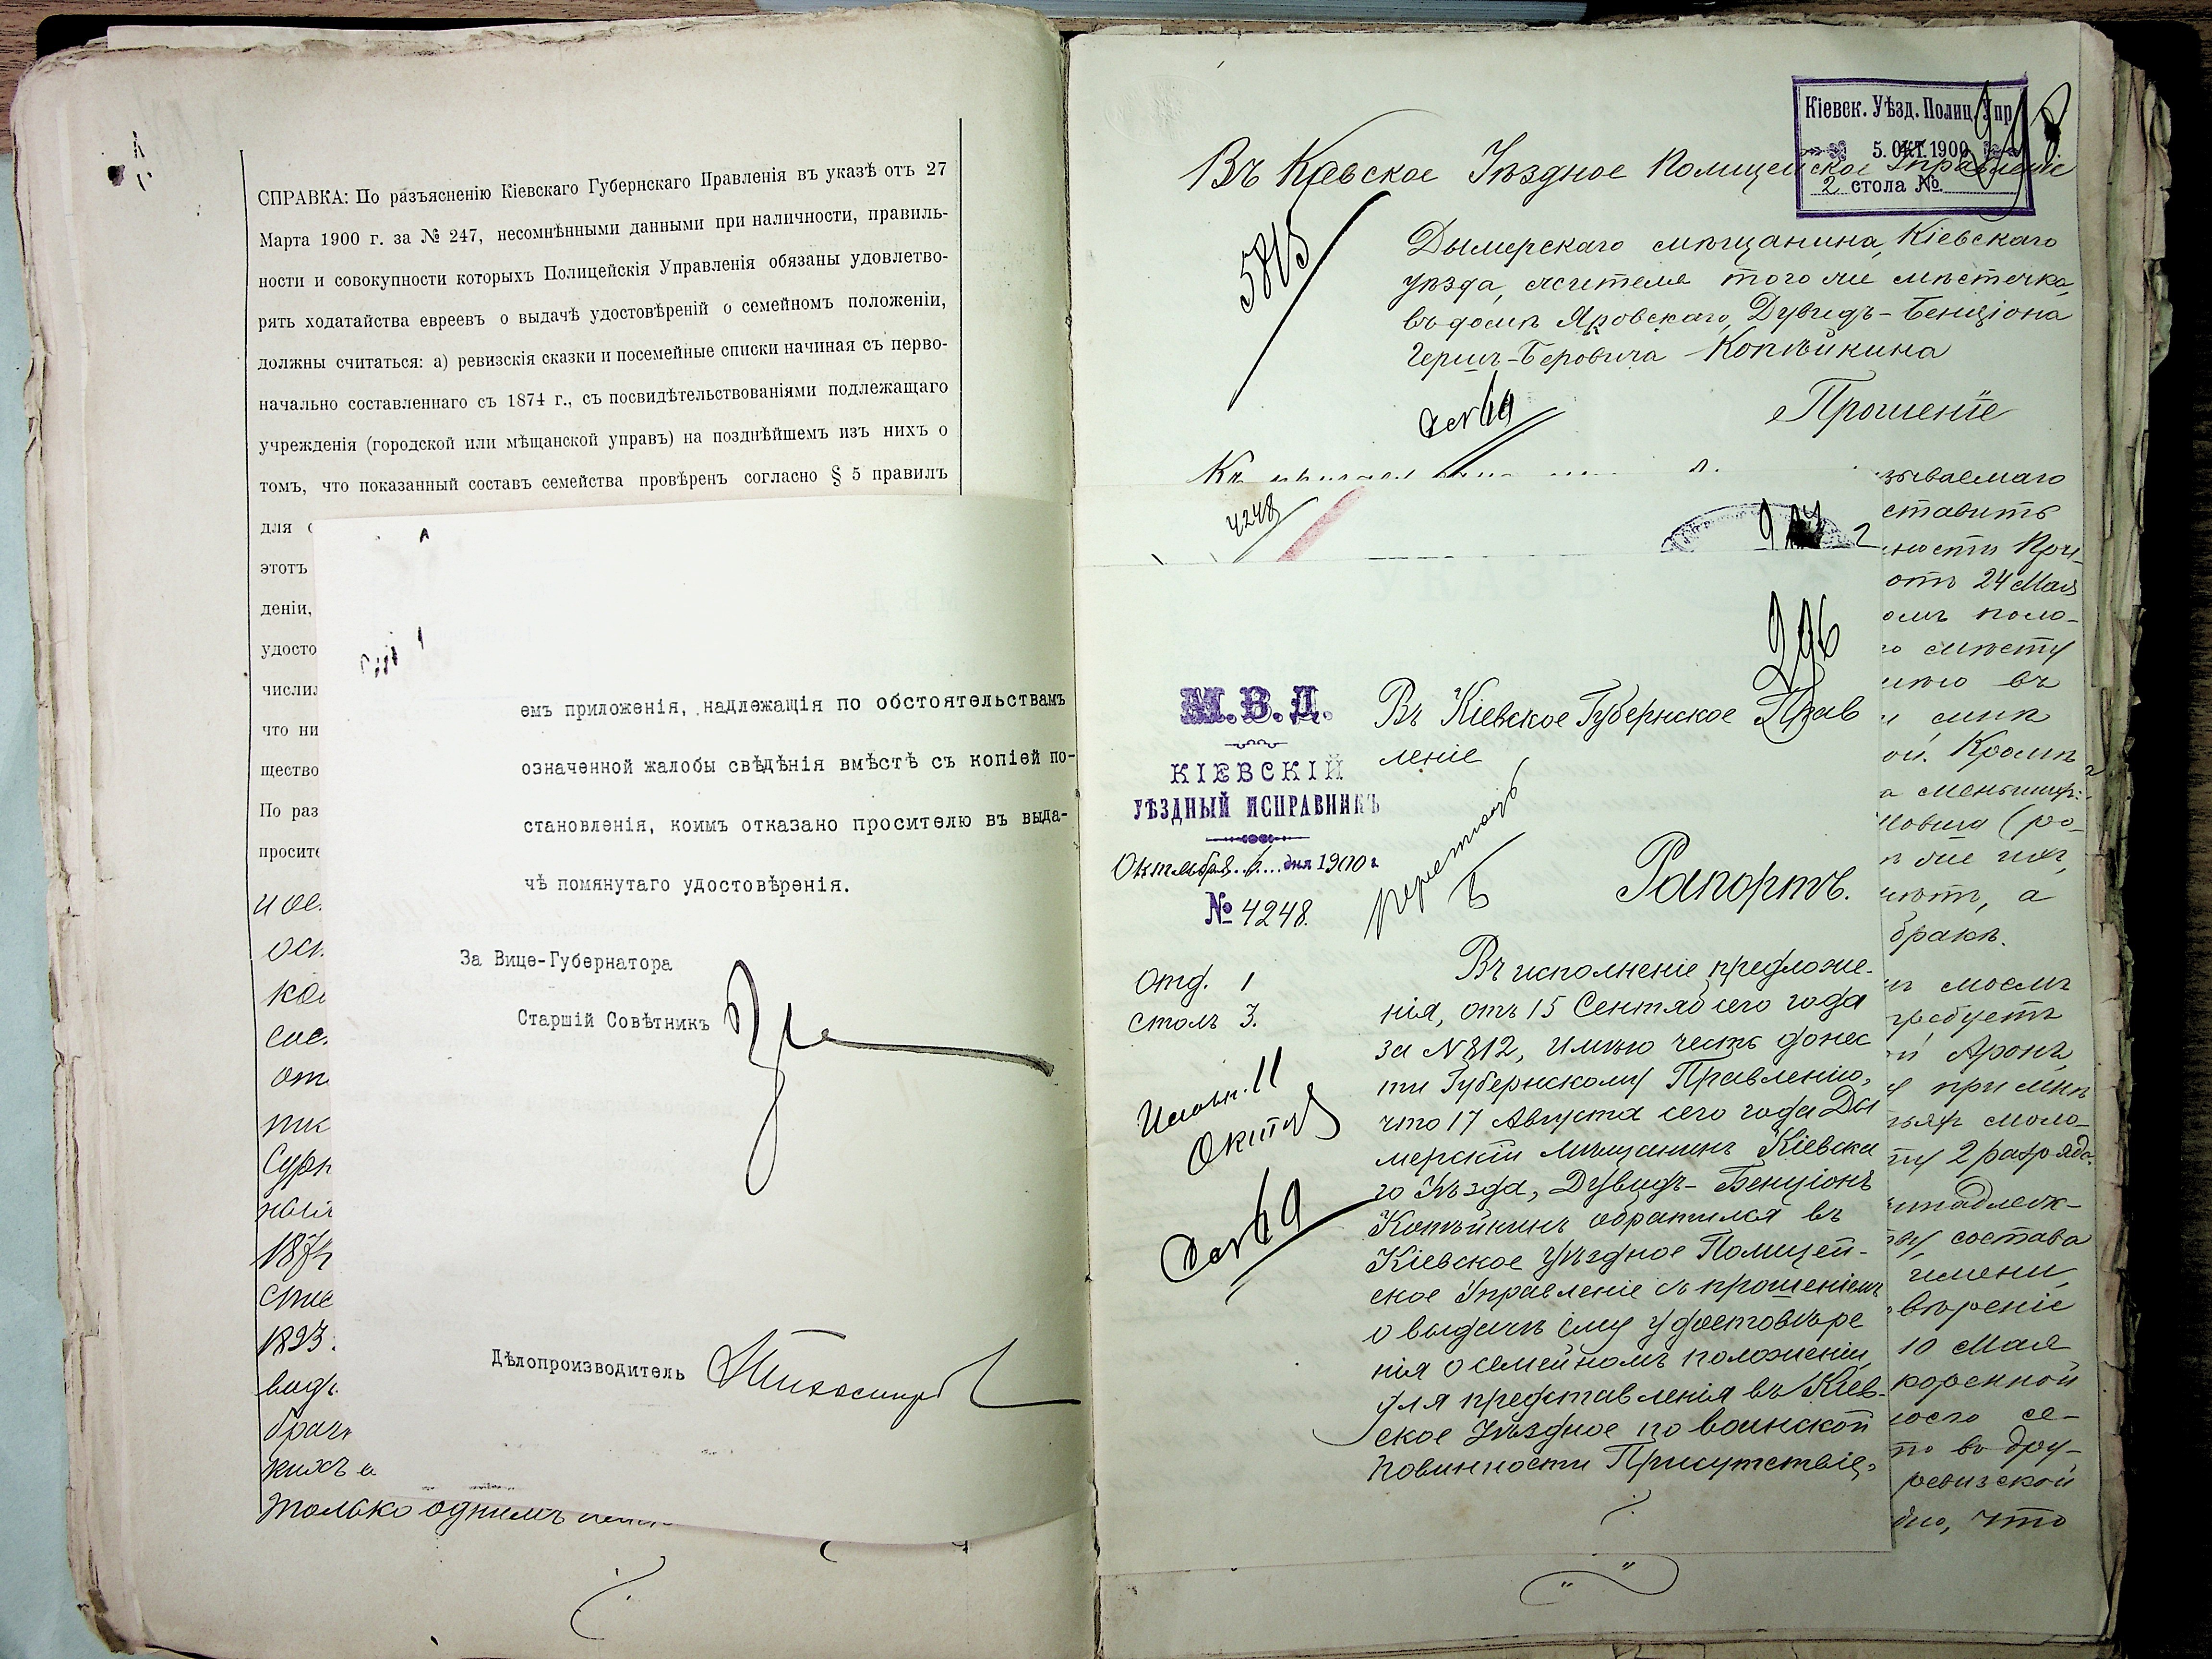 СПРАВКА: По разъясненію Кіевскаго Губернскаго Правленія въ указѣ отъ 27
Марта 1900 г. за № 247, несомнѣнными данными при наличности, правиль-
ности и совокупности которыхъ Полицейскія Управленія обязаны удовлетво-
рять ходатайства евреевъ о выдачѣ удостовѣреній о семейномъ положеніи,
должны считаться: а) ревизскія сказки и посемейные списки начиная съ перво-
начально составленнаго съ 1874 г., съ посвидѣтельствованіями подлежащаго
учрежденія (городской или мѣщанской управъ) на позднѣйшемъ изъ нихъ о
томъ, что показанный составъ семейства провѣренъ согласно § 5 правилъ
для
этотъ
деніи,
удосто
числил
что ни
щество
По раз
просите
1874
1893
только однимъ
емъ приложенія, надлежащія по обстоятельствамъ
означенной жалобы свѣдѣнія вмѣстѣ съ копіей по-
становленія, коимъ отказано просителю въ выда-
чѣ помянутаго удостовѣренія.
За Вице-Губернатора
Старшій Совѣтникъ
Дѣлопроизводитель
Кіевск. Уѣзд. Полиц. Упр.
5. ОКТ. 1900
2 стола №
Въ Кіевское Уѣздное Полицейское Управленіе
5815
Дымерскаго мѣщанина, Кіевскаго
уѣзда, жителя того же мѣстечка,
въ домѣ Яровскаго, Дувидъ-Бенціона
Герш-Беровича Копѣйкина
Прошеніе
4248
зываемаго
ставить
ности При-
отъ 24 Мая
омъ поло-
мѣсту
въ
ой. Кромѣ
а
бракѣ.
моемъ
требуетъ
Аронъ,
при мнѣ
2 разряда.
состава
имени,
10 Мая
коренной
се-
во дру-
ревизской
что
296
М.В.Д.
КІЕВСКІЙ
УѢЗДНЫЙ ИСПРАВНИКЪ
Октября 6 дня 1900 г.
№ 4248.
Отд. 1
Столъ 3.
Исполн. 11
Октяб
Въ Кіевское Губернское Прав
леніе
Рапортъ.
Въ исполненіе предложе-
нія, отъ 15 Сентяб сего года
за № 812, имѣю честь донес
ти Губернскому Правленію,
что 17 Августа сего года Ды
мерскій мѣщанинъ Кіевска
го Уѣзда, Дувидъ-Бенціонъ
Копѣйкинъ обратился въ
Кіевское Уѣздное Полицей-
ское Управленіе съ прошеніемъ
о выдачѣ ему удостовѣре
нія о семейномъ положеніи,
для представленія въ Кіев-
ское Уѣздное по воинской
повинности Присутствіе,